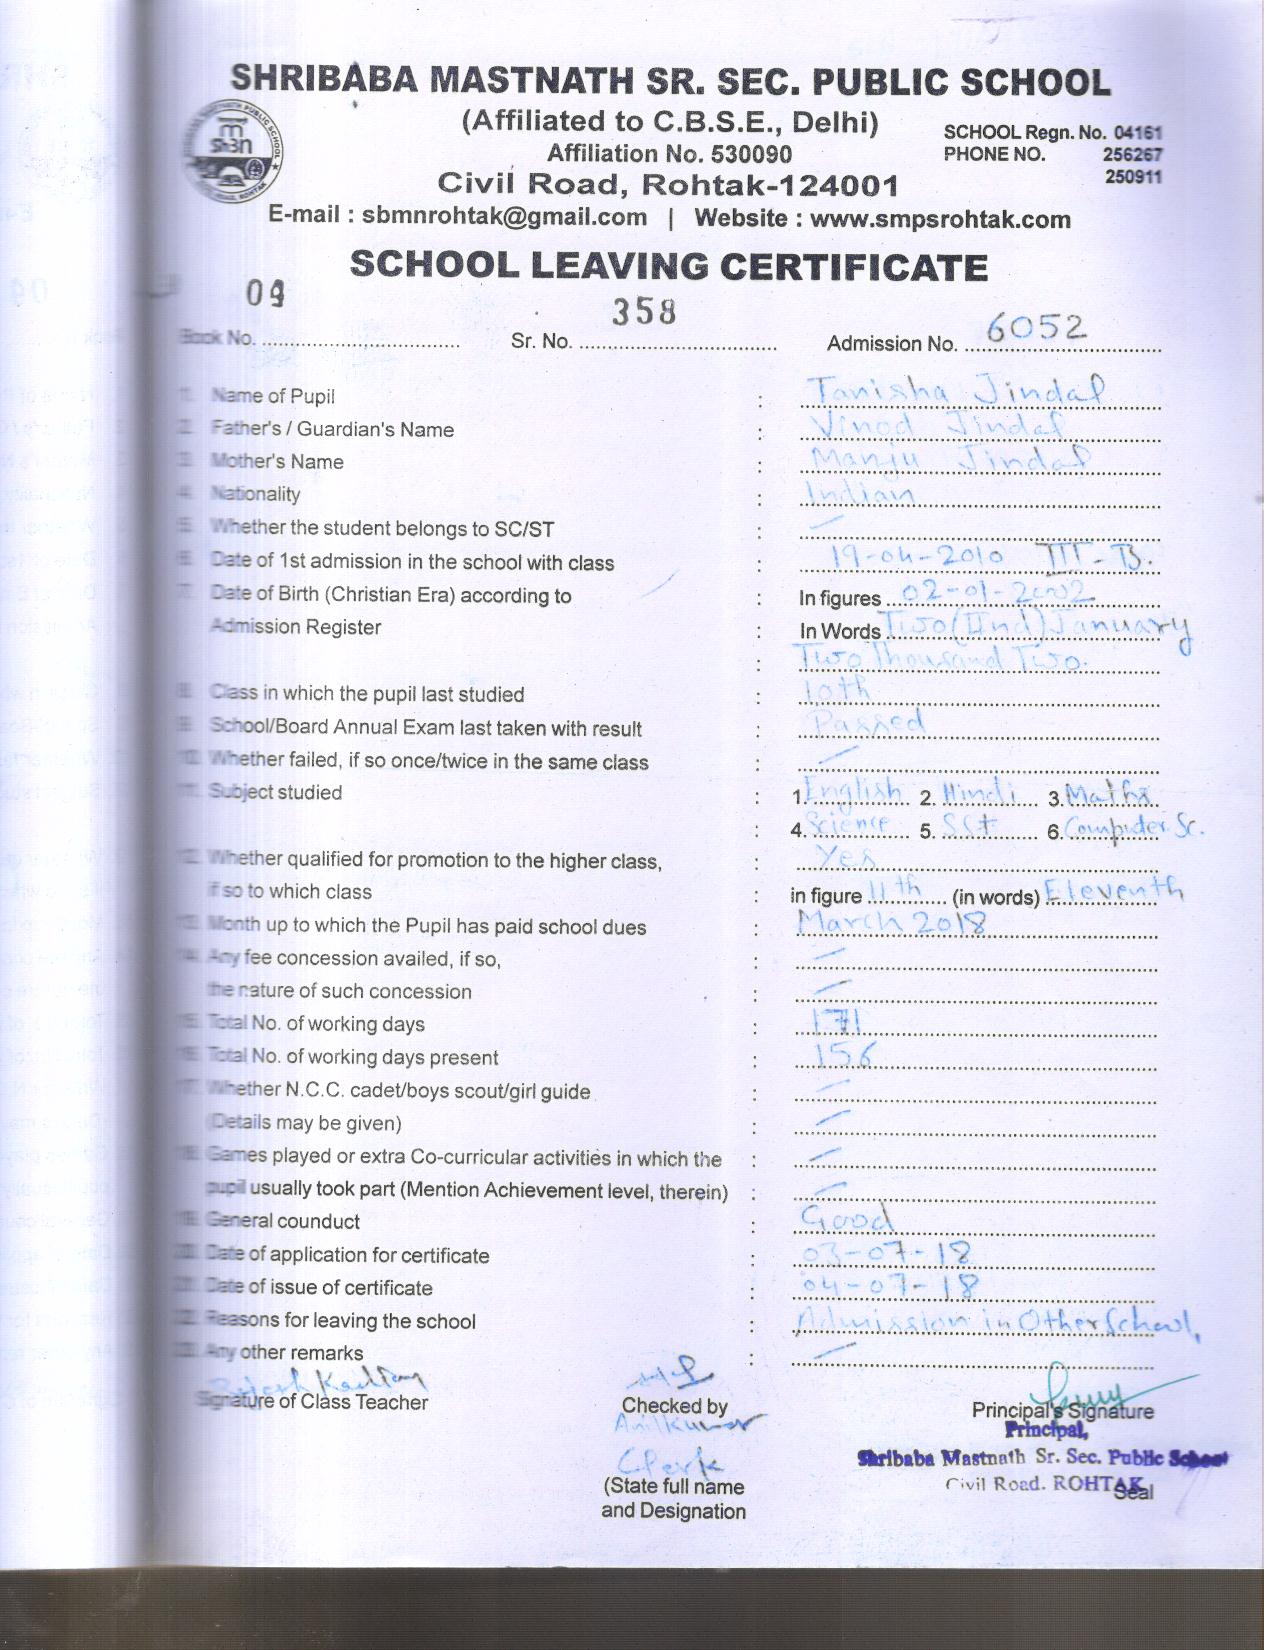 SHRIBABA MASTNATH SR. SEC. PUBLIC SCHOOL
(Affiliated to C.B.S.E., Delhi)
SCHOOL Regn. No. 04161
Affiliation No. 530090
PHONE NO. 256267
250911
Civil Road, Rohtak-124001
E-mail : sbmnrohtak@gmail.com | Website : www.smpsrohtak.com
SCHOOL LEAVING CERTIFICATE
Book No. 09 Sr. No. 358 Admission No. 6052
1. Name of Pupil : Tanisha Jindal
2. Father's / Guardian's Name : Vinod Jindal
3. Mother's Name : Manju Jindal
4. Nationality : Indian
5. Whether the student belongs to SC/ST : —
6. Date of 1st admission in the school with class : 19-04-2010 III-B.
7. Date of Birth (Christian Era) according to : In figures 02-01-2002
Admission Register : In Words Two (IInd) January
: Two Thousand Two.
8. Class in which the pupil last studied : 10th
9. School/Board Annual Exam last taken with result : Passed
10. Whether failed, if so once/twice in the same class : —
11. Subject studied : 1. English 2. Hindi 3. Maths
: 4. Science 5. SSt 6. Computer Sc.
12. Whether qualified for promotion to the higher class, : Yes
if so to which class : in figure 11th (in words) Eleventh
13. Month up to which the Pupil has paid school dues : March 2018
14. Any fee concession availed, if so, : —
the nature of such concession : —
15. Total No. of working days : 171
16. Total No. of working days present : 156
17. Whether N.C.C. cadet/boys scout/girl guide : —
(Details may be given) : —
18. Games played or extra Co-curricular activities in which the : —
pupil usually took part (Mention Achievement level, therein) : —
19. General counduct : Good
20. Date of application for certificate : 03-07-18
21. Date of issue of certificate : 04-07-18
22. Reasons for leaving the school : Admission in Other School,
23. Any other remarks : —
Signature of Class Teacher
Checked by
Anil Kumar
Clerk
(State full name
and Designation
Principal's Signature
Principal,
Shribaba Mastnath Sr. Sec. Public School
Civil Road. ROHTAK
Seal